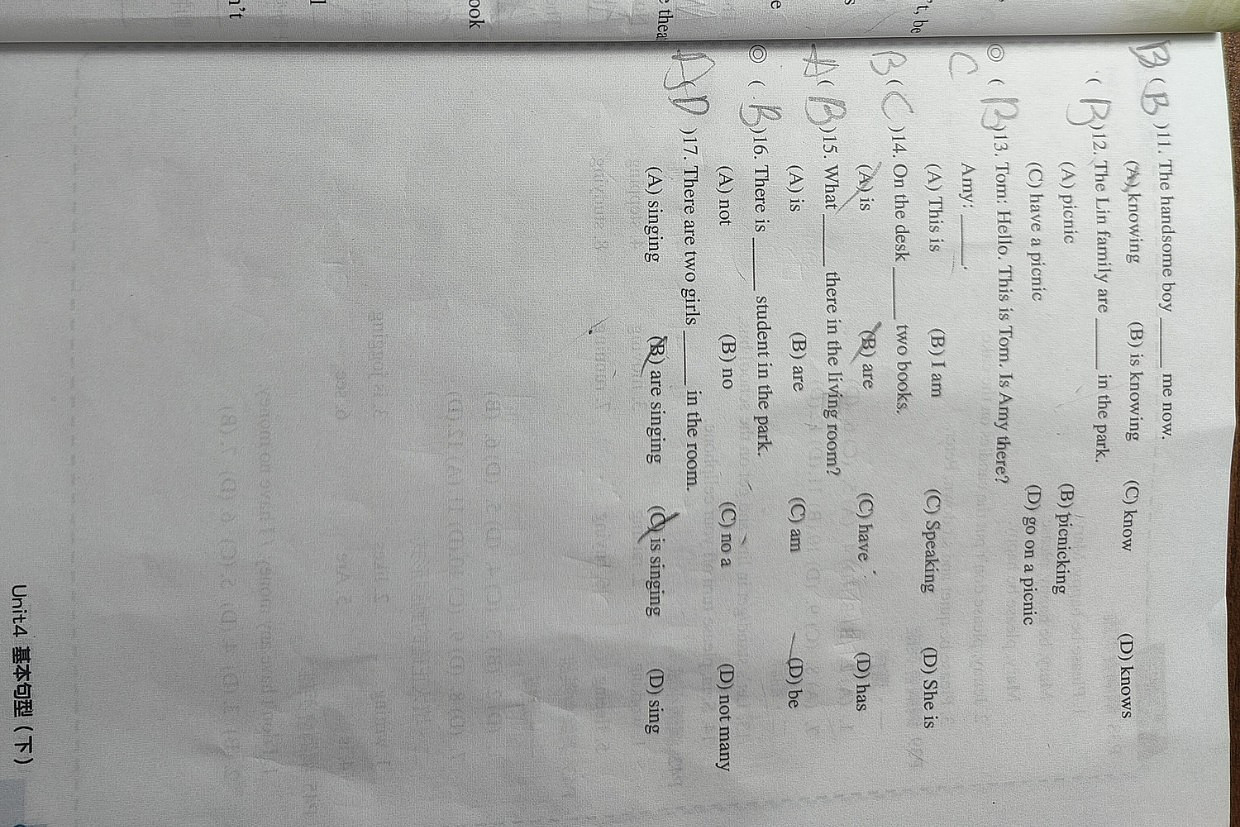 B ( B )11. The handsome boy ______ me now.
(A) knowing (B) is knowing (C) know (D) knows
( B )12. The Lin family are ______ in the park.
(A) picnic (B) picnicking
(C) have a picnic (D) go on a picnic
◎ ( B )13. Tom: Hello. This is Tom. Is Amy there?
C Amy: ______.
(A) This is (B) I am (C) Speaking (D) She is
B ( C )14. On the desk ______ two books.
(A) is (B) are (C) have (D) has
A ( B )15. What ______ there in the living room?
(A) is (B) are (C) am (D) be
◎ ( B )16. There is ______ student in the park.
(A) not (B) no (C) no a (D) not many
A ( D )17. There are two girls ______ in the room.
(A) singing (B) are singing (C) is singing (D) sing
't, be
s
e
e thea
ook
l
n't
Unit4 基本句型（下）